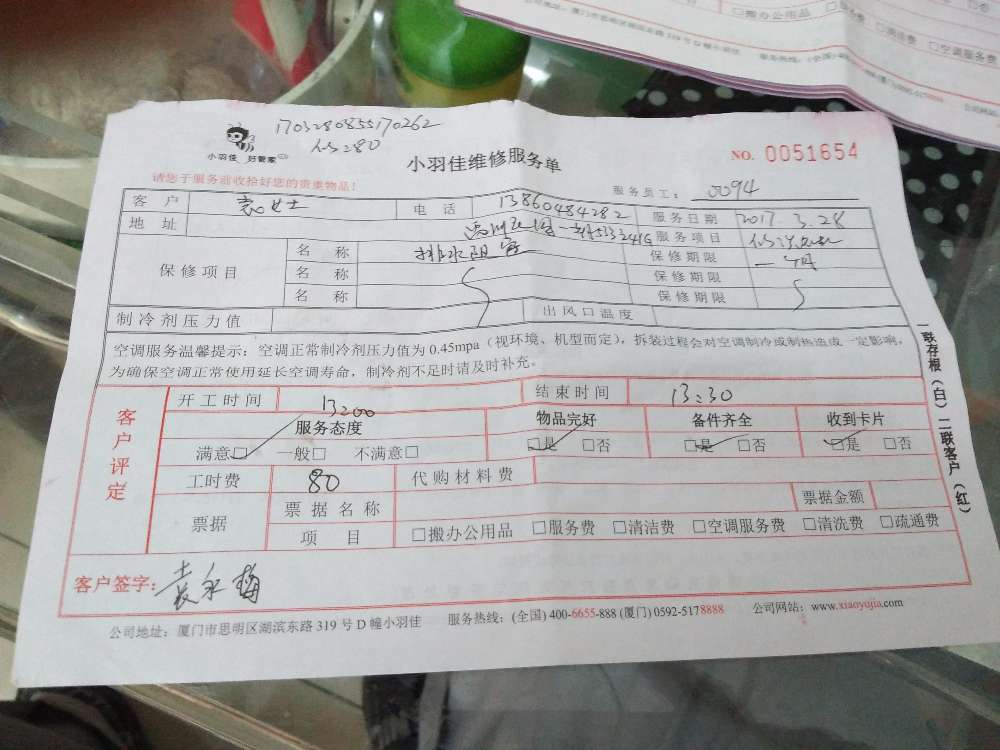 搬办公用品
厦门市思明区湖滨东路319号D幢小羽佳
清洁费 □空调服务费
服务热线：(全国)
公司网站
170328085517 0262
小羽佳 好管家
小羽佳维修服务单
NO. 0051654
请您于服务前收拾好您的贵重物品！
服务员工： 0094
客户 袁女士 电话 13860484282 服务日期 2017.3.28
地址 服务项目
保修项目 名称 排水 保修期限 一个月
名称 保修期限
名称 保修期限
制冷剂压力值 出风口温度
空调服务温馨提示：空调正常制冷剂压力值为 0.45mpa（视环境、机型而定），拆装过程会对空调制冷或制热造成一定影响，
为确保空调正常使用延长空调寿命，制冷剂不足时请及时补充。
一联存根（白）二联客户（红）
客户评定
开工时间 13:00 结束时间 13:30
服务态度 物品完好 备件齐全 收到卡片
满意□ 一般□ 不满意□ □是 □否 □是 □否 □是 □否
工时费 80 代购材料费
票据 票据名称 票据金额
项目 □搬办公用品 □服务费 □清洁费 □空调服务费 □清洗费 □疏通费
客户签字： 袁永梅
公司地址：厦门市思明区湖滨东路 319 号 D 幢小羽佳 服务热线：(全国) 400-6655-888 (厦门) 0592-5178888 公司网站：www.xiaoyujia.com